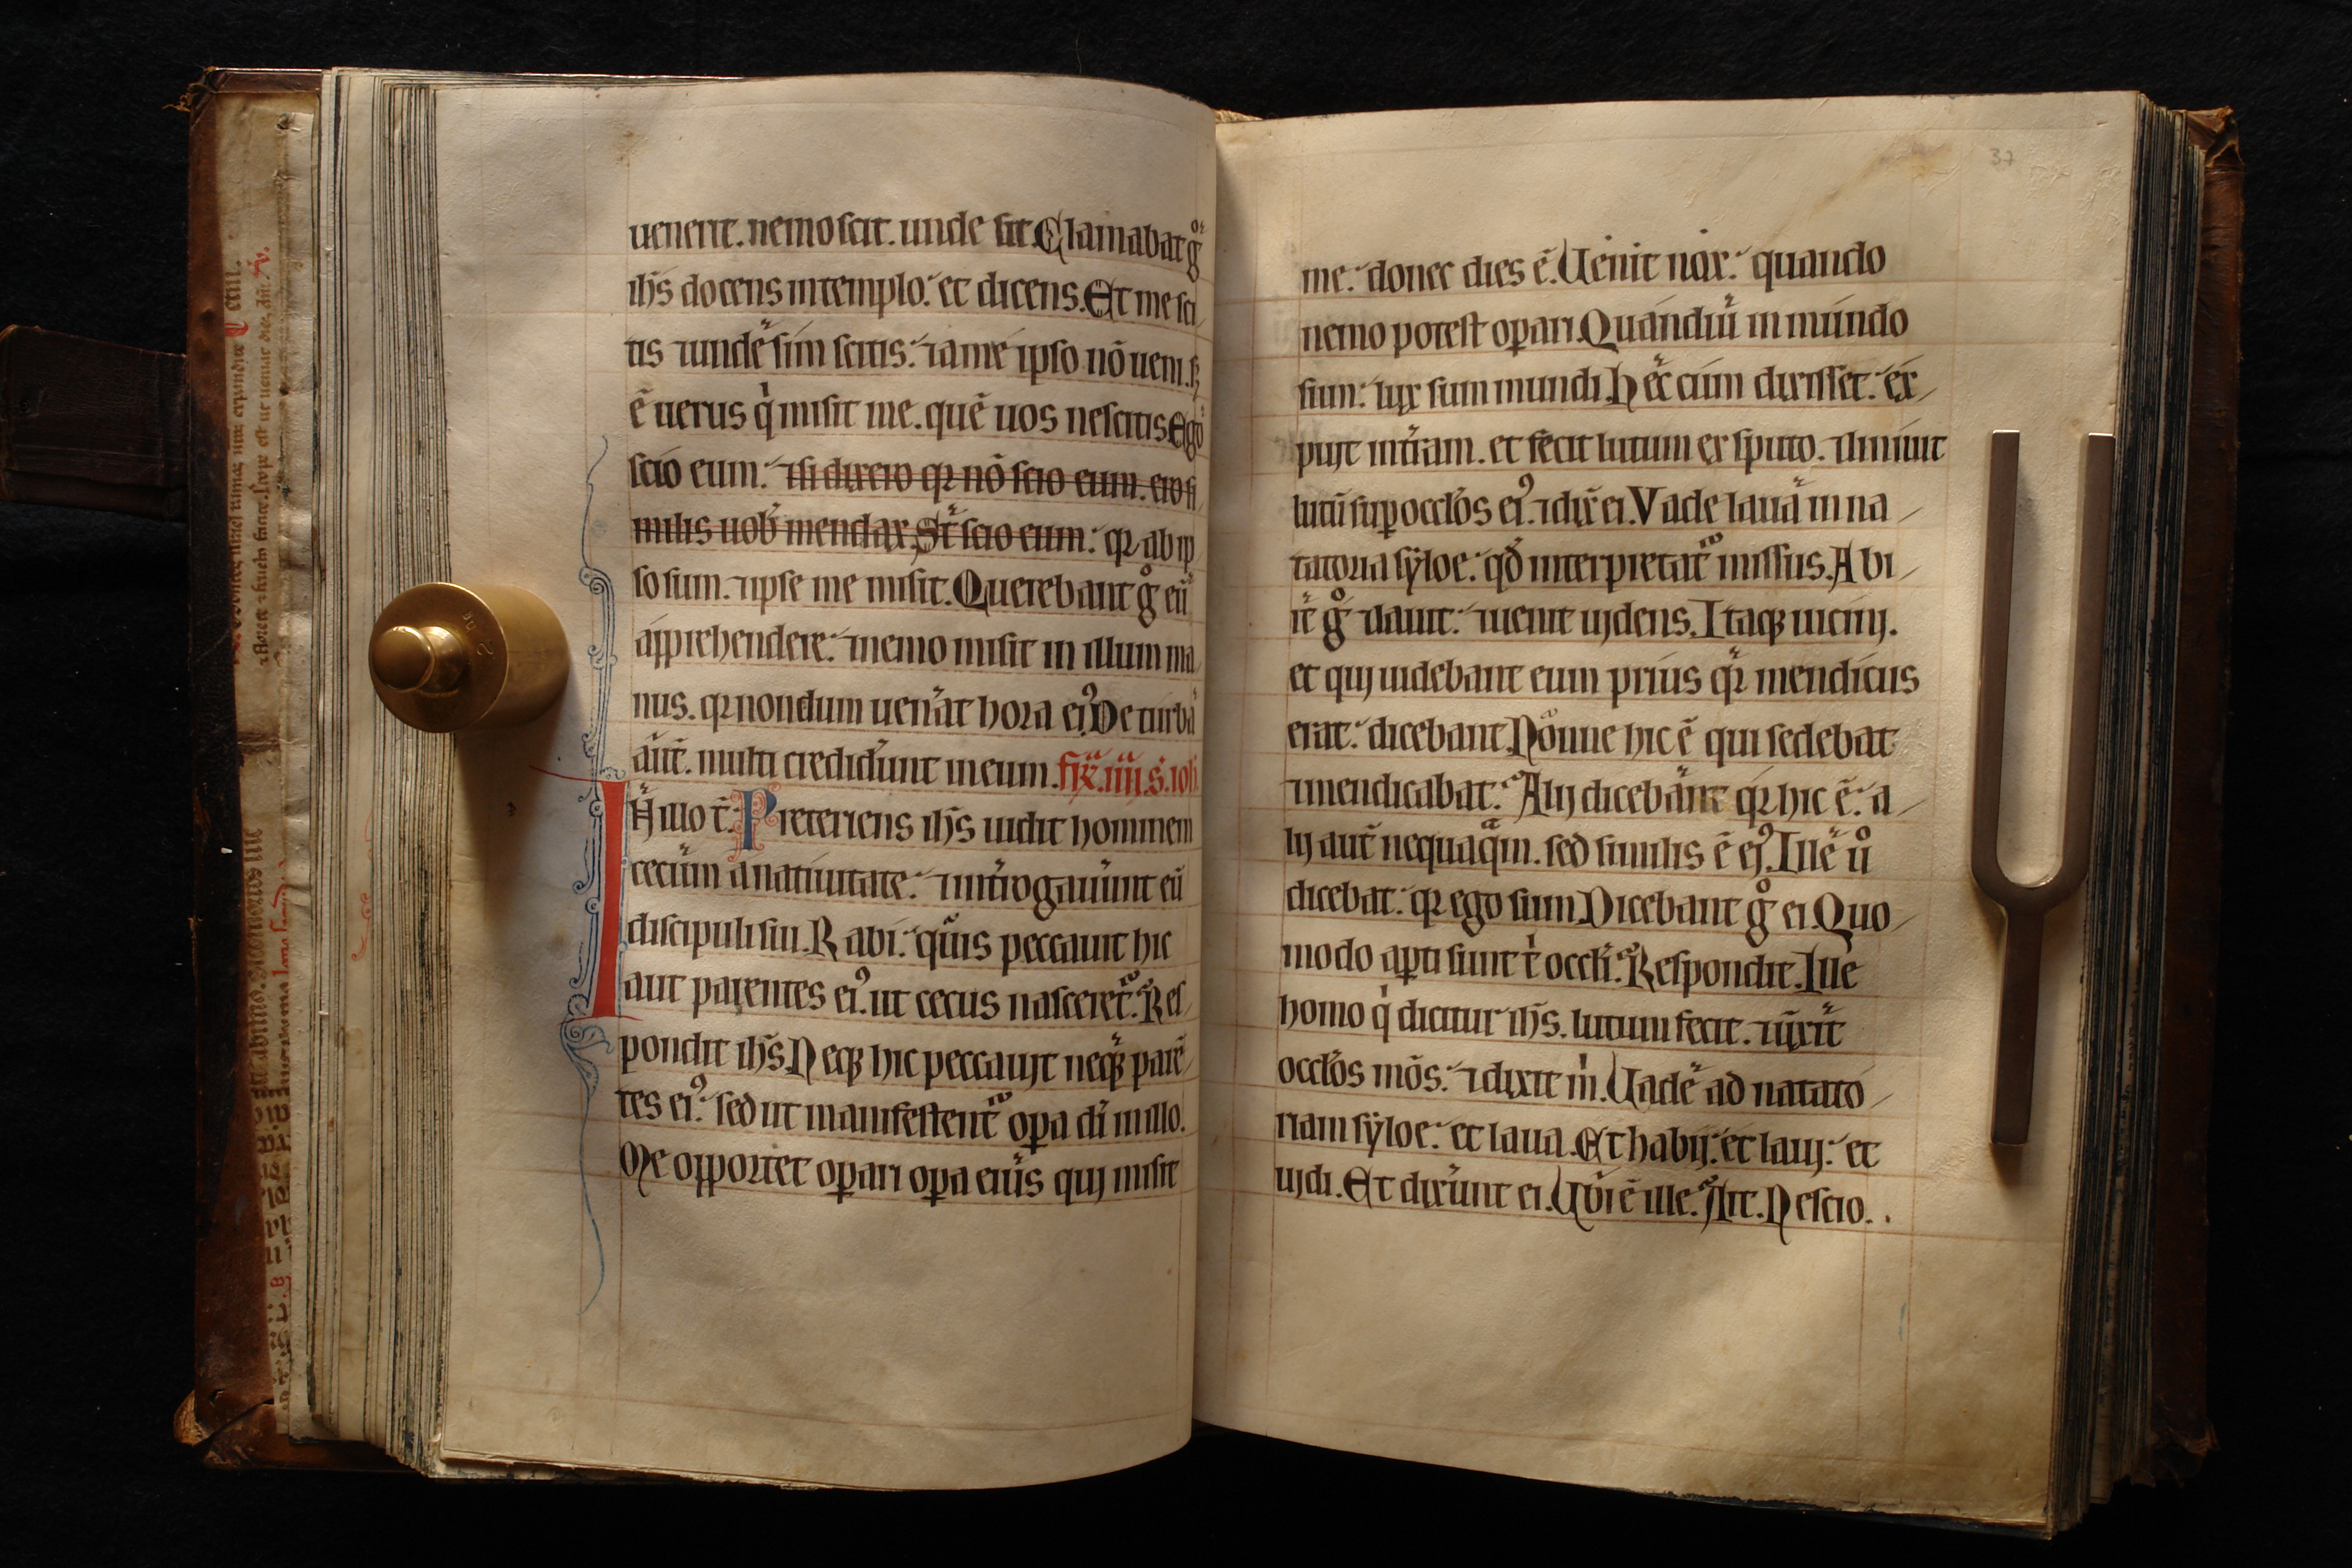 uenerit. nemo scit. unde sit. Clamabat g°
ihs̄ docens in templo. et dicens. Et me sci
tis ⁊ unde sim scitis. ⁊ a me ipso nō ueni. sꝫ
ē uerus qͥ misit me. quē uos nescitis Ego
scio eum. ⁊ si dixero qꝛ nō scio eum. ero si
milis uob̄ mendax. St̄ scio eum. qꝛ ab ip
so sum. ⁊ ipse me misit. Querebant g° eū
apprehendere. ⁊ nemo misit in illum ma
nus. qꝛ nondum uen̄at hora eiꝰ. De turba
aut̄. multi crediderūt in eum. fr̄. iiij. s. ioh
In illo t̄. Preteriens ihs̄ uidit hominem
cecum a natiuitate. ⁊ int̄rogauūnt eū
discipuli sui. Rabi. quis peccauit hic
aut parentes eiꝰ. ut cecus nasceret̄. Res
pondit ihs̄. Neqꝫ hic peccauit neqꝫ parē
tes eiꝰ. sed ut manifestent̄ oꝑa dī in illo.
Me opportet oꝑari oꝑa eius qui misit
37
me. donec dies ē. Uenit nox. quando
nemo potest oꝑari. Quandiu in mundo
sum. lux sum mundi. Hec cum dixisset. ex
puit in t̄ram. et fecit lutum ex sputo. ⁊ liniuit
lutū suꝑ occłos eiꝰ. ⁊ dix̄ ei. Vade laua in na
tatoria syloe. qd̄ interpretat̄ missus. Abi
it g° ⁊ lauit. ⁊ uenit uidens. Itaqꝫ uicinij.
et qui uidebant eum prius qꝛ mendicus
erat. dicebant. Nonne hic ē qui sedebat
⁊ mendicabat. Alij dicebant qꝛ hic ē. a
lij aut̄ nequaqͣm. sed similis ē eiꝰ. Ille u°
dicebat. qꝛ ego sum. Dicebant g° ei. Quo
modo aꝑti sunt tͥ occłi. Respondit. Ille
homo qͥ dicitur ihs̄. lutum fecit. ⁊ unxit
occłos mōs. ⁊ dixit mͥ. Uade ad natato
riam syloe. et laua. Et habij. et laui. et
uidi. Et dixūnt ei. Ubi ē ille. Ait. Nescio.